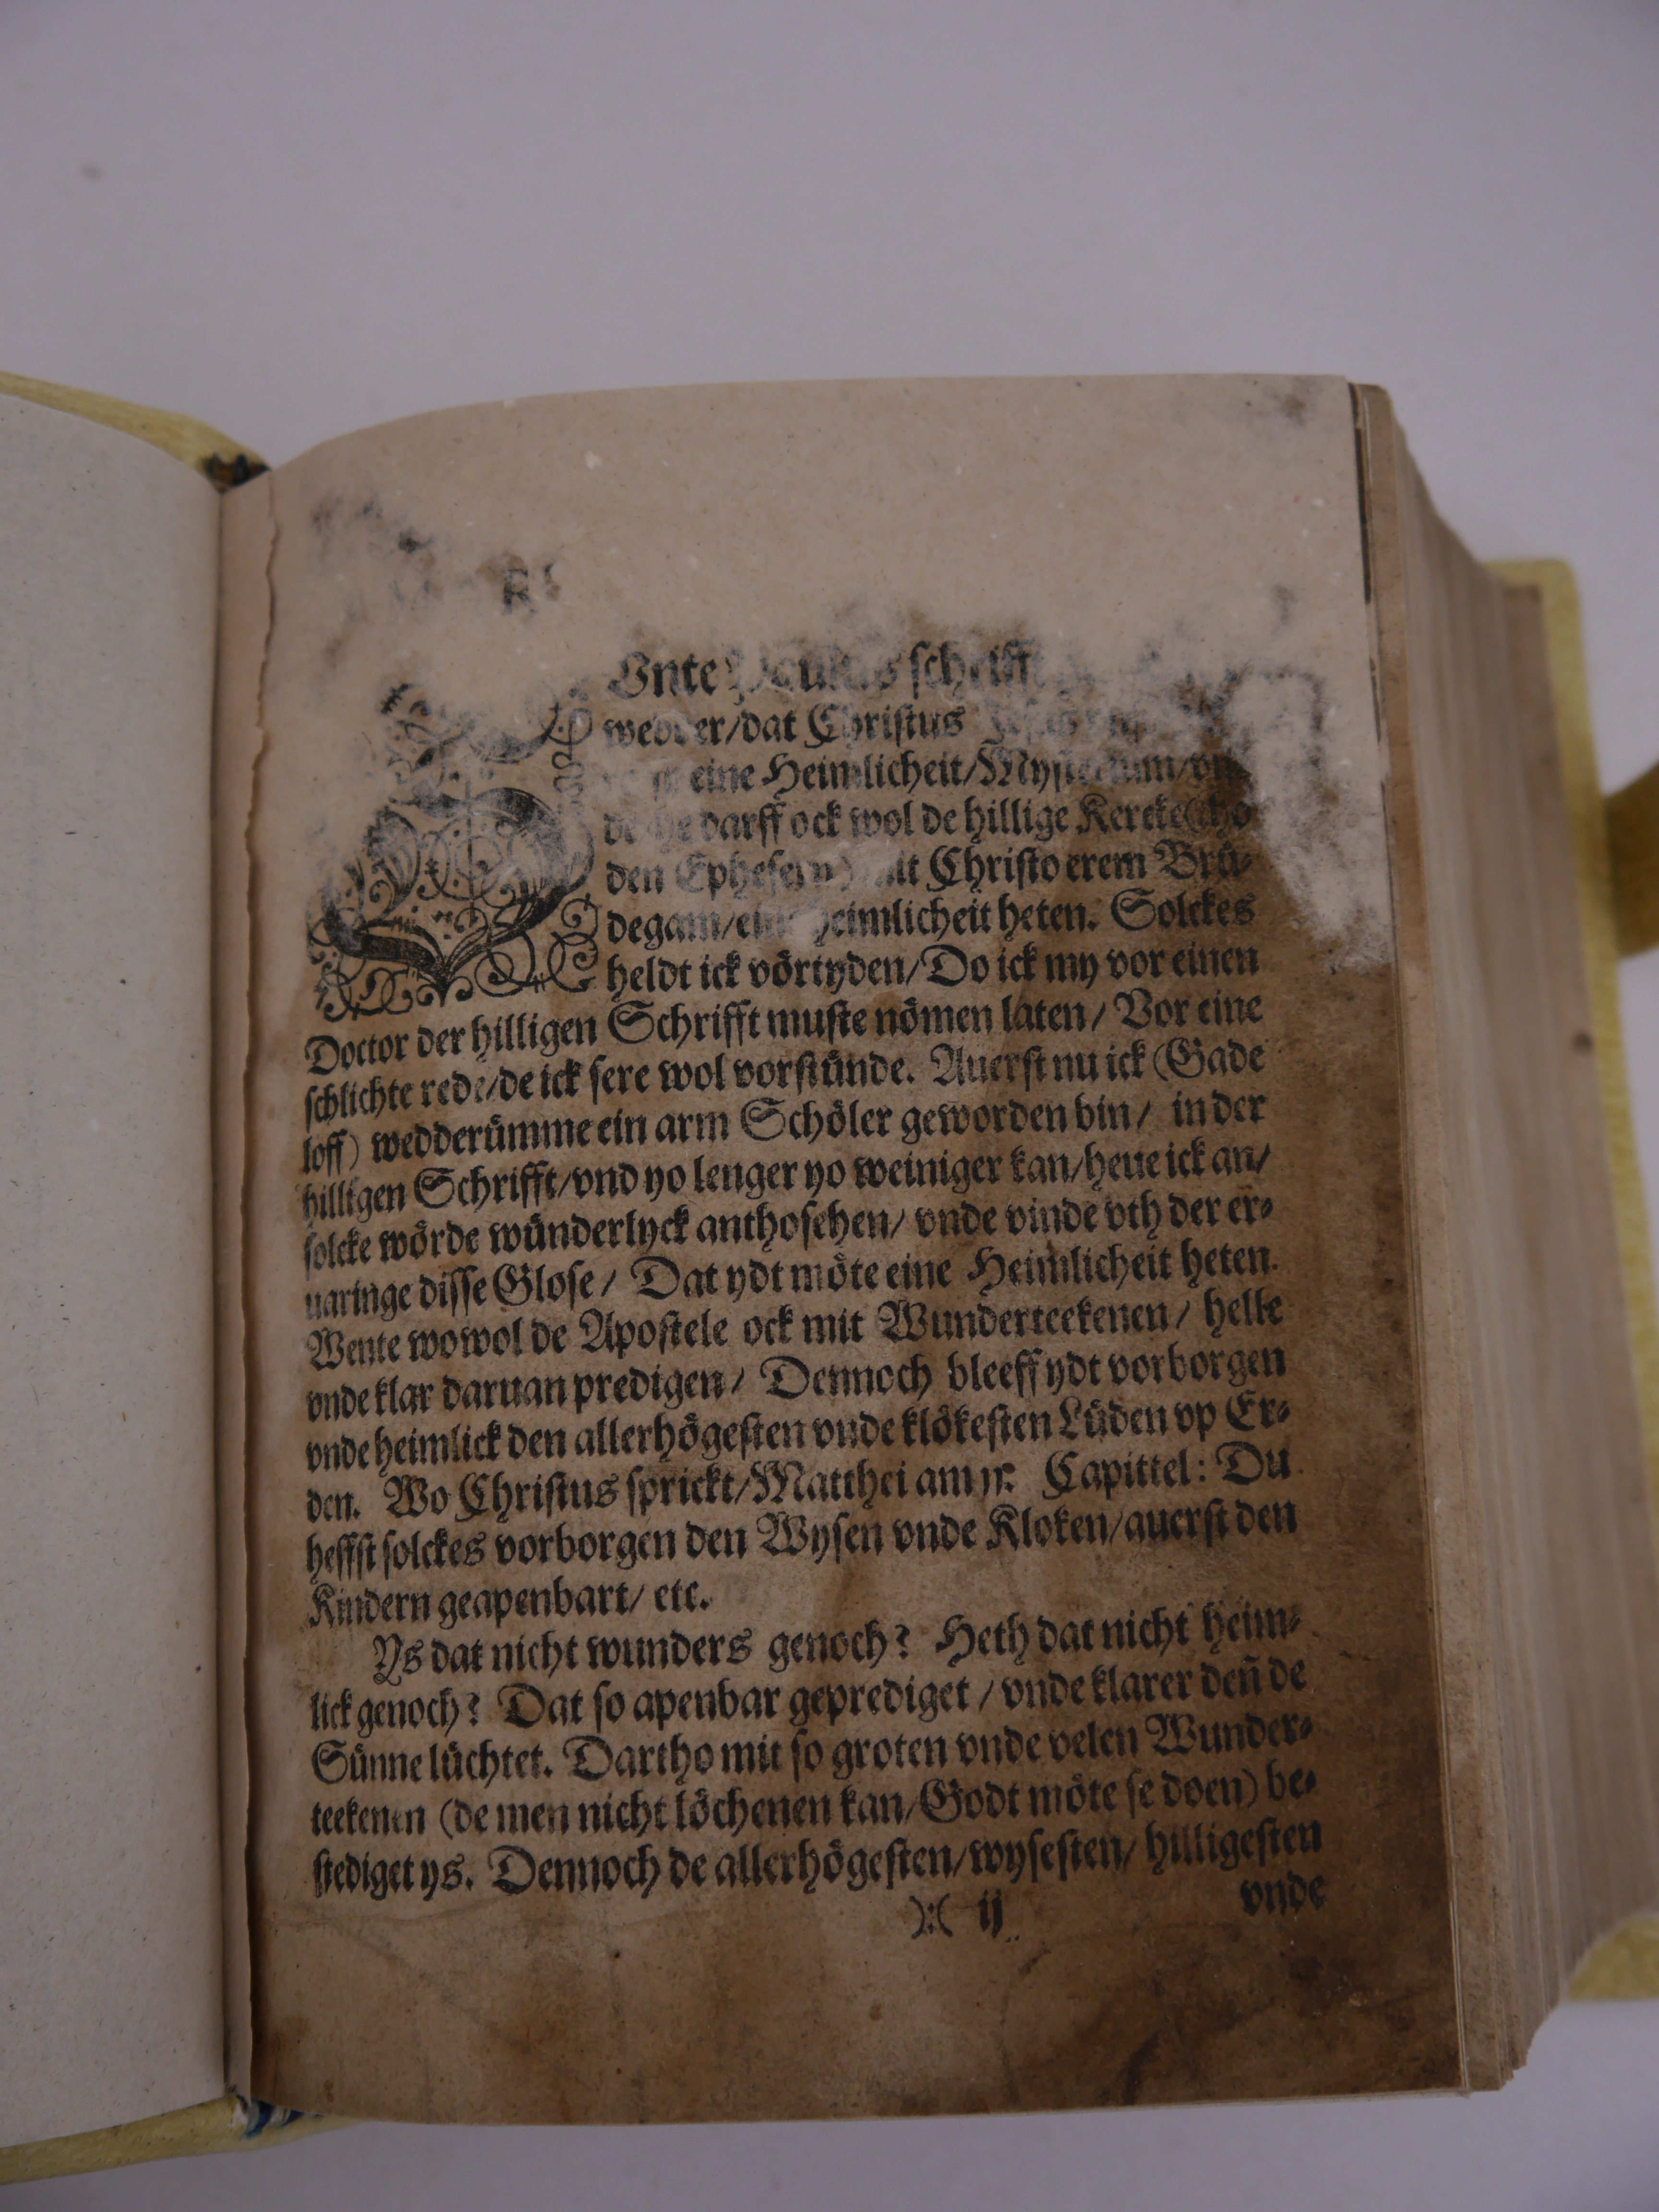 Vnte schrifft
wedder/dat Christus
eine Heimlicheit/Mysterium/
darff ock wol de hillige Kercke (tho
den Ephesern) mit Christo erem Brü-
degam/eine Heimlicheit heten. Solckes
heldt ick vörtyden/Do ick my vor einen
Doctor der hilligen Schrifft muste nömen laten/ Vor eine
schlichte rede/de ick sere wol vorstünde. Auerst nu ick (Gade
loff) wedderümme ein arm Schöler geworden bin/ in der
hilligen Schrifft/vnd yo lenger yo weiniger kan/heue ick an/
solcke wörde wünderlyck anthosehen/ vnde vinde vth der er-
uaringe disse Glose/ Dat ydt möte eine Heimlicheit heten.
Wente wowol de Apostele ock mit Wunderteekenen/ helle
vnde klar daruan predigen/ Dennoch bleeff ydt vorborgen
vnde heimlick den allerhögesten vnde klökesten Lüden vp Er-
den. Wo Christus sprickt/Matthei am Capittel: Du
heffst solckes vorborgen den Wysen vnde Kloken/auerst den
Kindern geapenbart/ etc.
Ys dat nicht wunders genoch? Heth dat nicht heim-
lick genoch? Dat so apenbar geprediget/ vnde klarer den̄ de
Sünne lüchtet. Dartho mit so groten vnde velen Wunder-
teekenen (de men nicht löchenen kan/Godt möte se doen) be-
stediget ys. Dennoch de allerhögesten/wysesten/ hilligesten
):( ij vnde